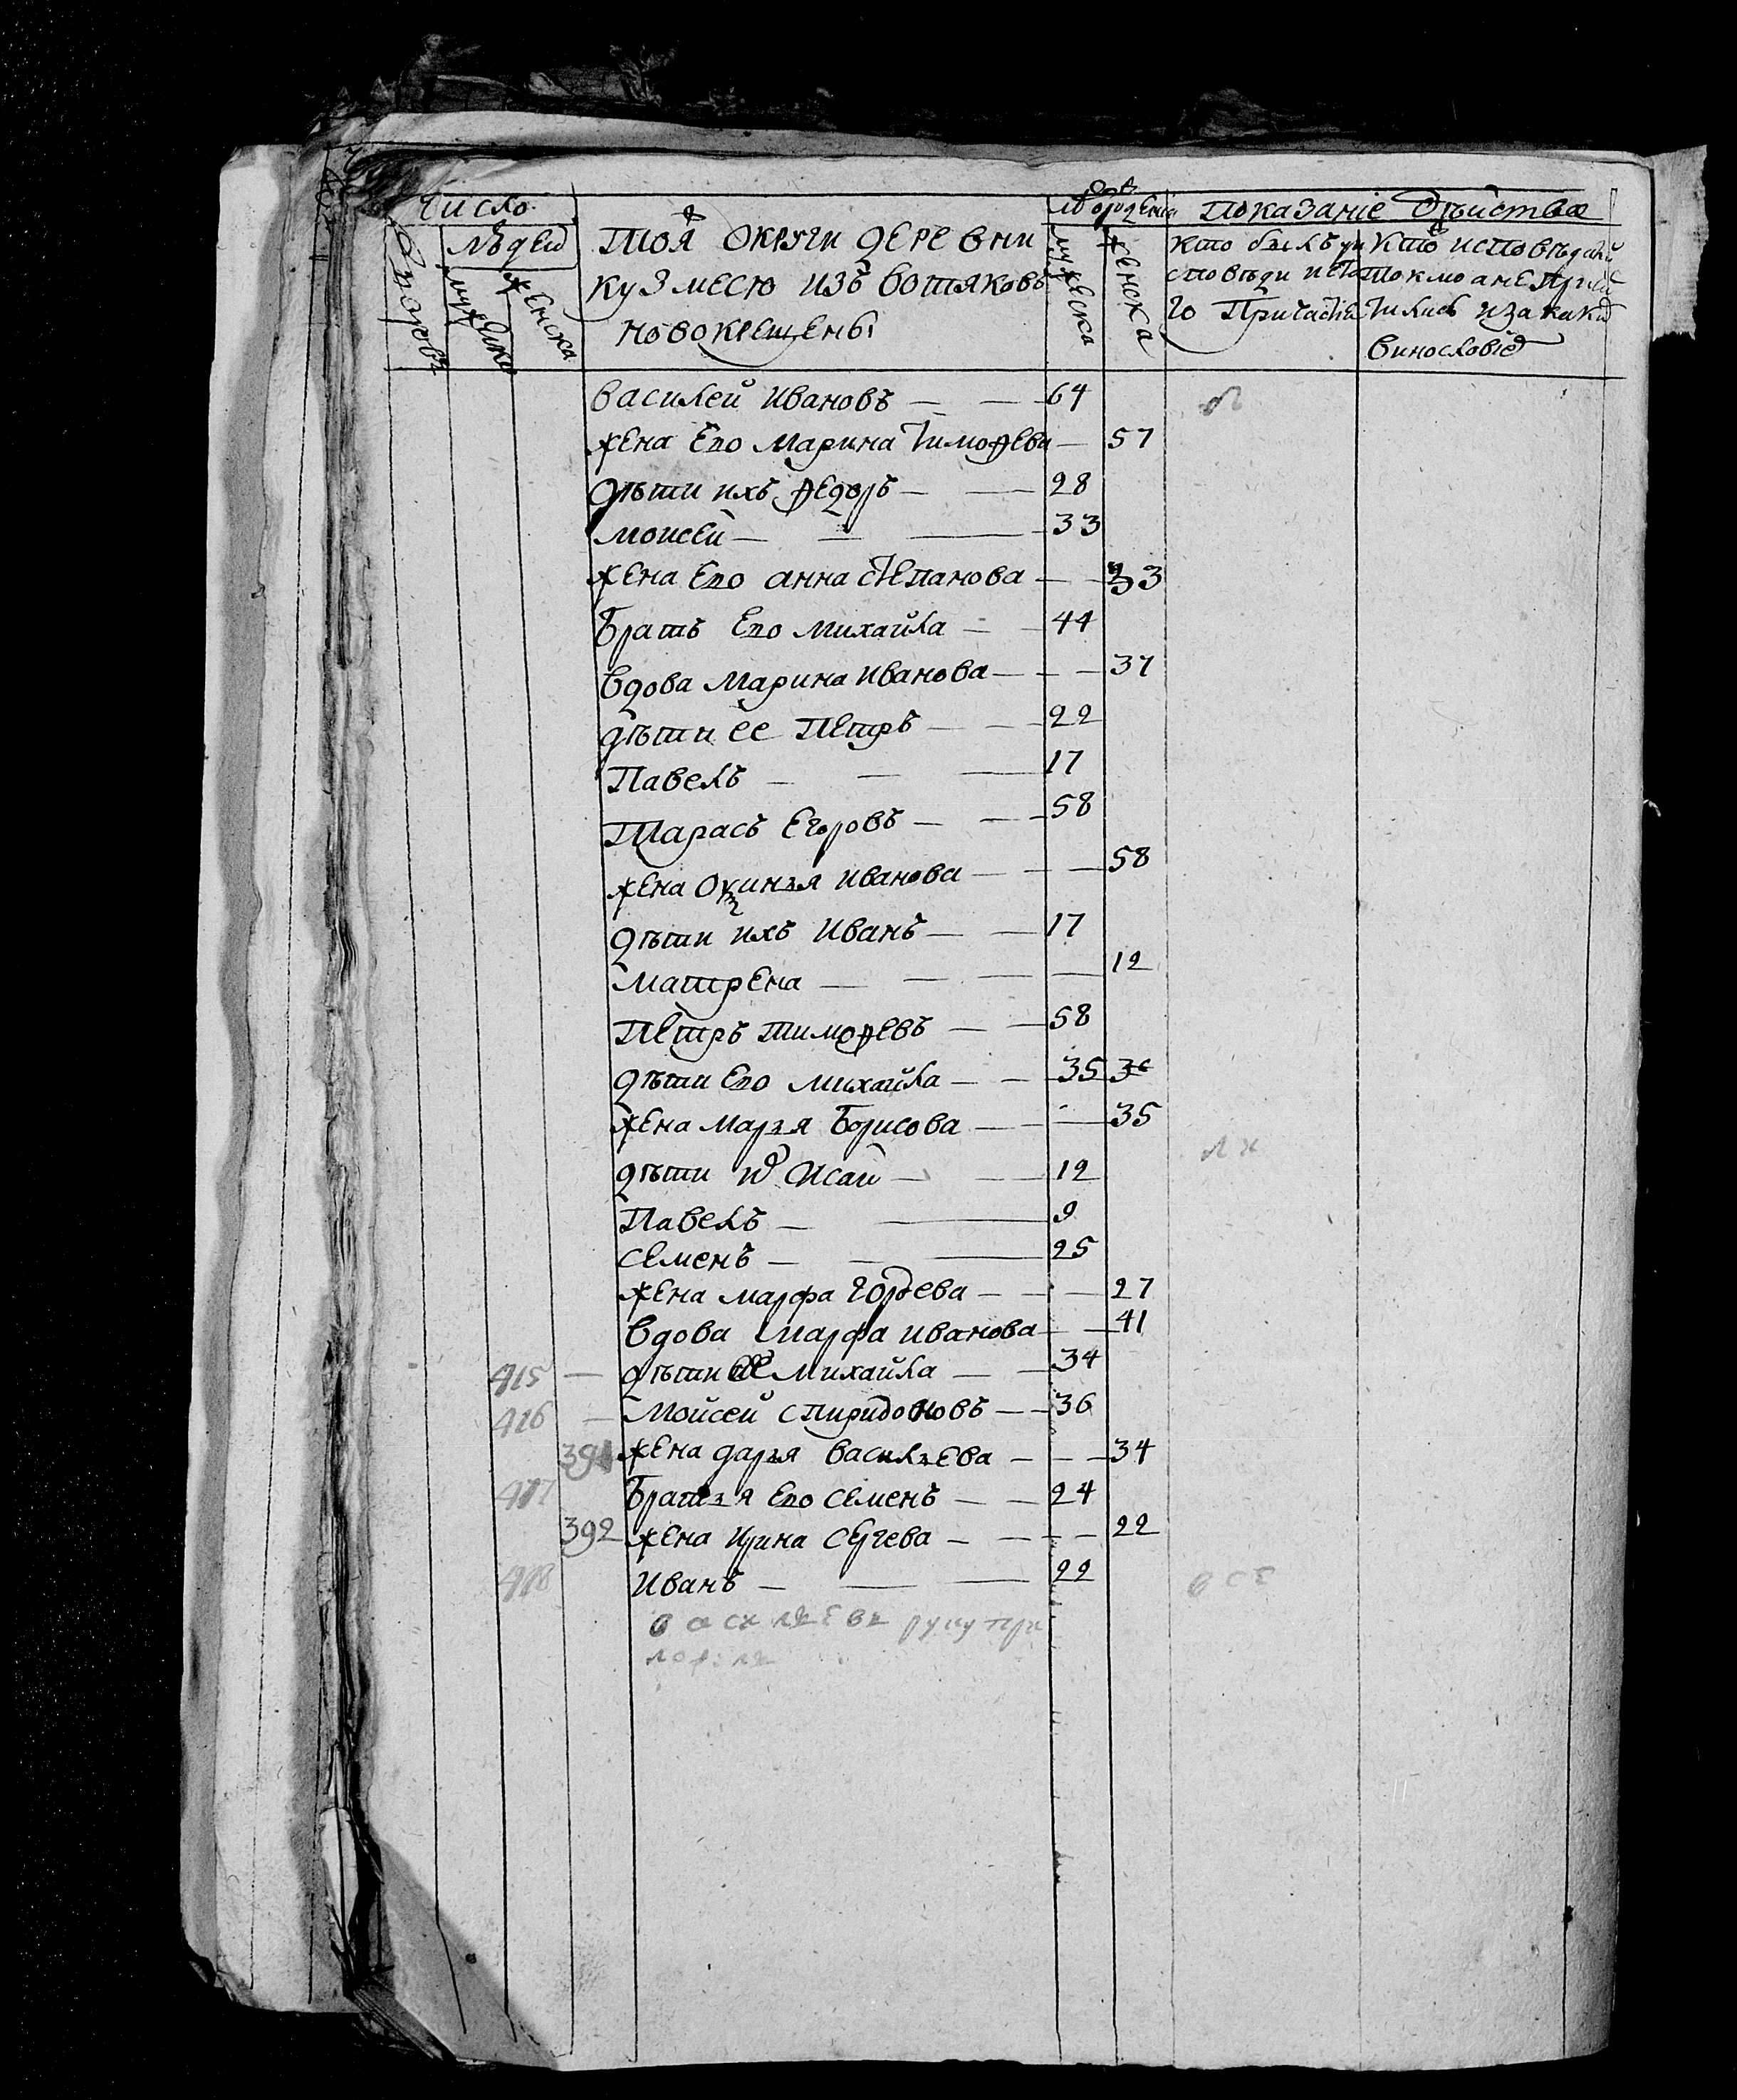 Число
Дворовъ
людей
мужска
женска
Тоя округи деревни
кузмесю изъ вотяковъ
новокрещены
лѣ отъ рожденя
мужеска
женска
Показаніе Дѣиства
кто былъ уи
споведи и с
го Причастия
Кто исповѣдай
токмо а не Прич
тились и за каки
винословіе
Василей Ивановъ — — 64
жена Его Марина Тимофева — 57
дѣти ихъ Федоръ — — 28
Моисей — — — 33
жена Его анна степанова — — 33
Братъ Его михайла — — 44
Вдова Марина Иванова — — — 37
дѣти ее Петръ — — 22
Павелъ — — — 17
Тарасъ Егоровъ — — 58
жена Окинья Иванова — — — 58
дѣти ихъ Иванъ — — 17
Матрена — — — — 12
Петръ тимофевъ — — 58
дѣти Его михайла — — 35
жена марья Борисова — — — 35
дѣти их Исай — — 12
Павелъ — — 9
Семенъ — — — 25
жена марфа Гордева — — — 27
Вдова Марфа Иванова — — 41
415 — дѣти ее Михайла — — 34
416 — Мойсей спиридоновъ — — 36
391 жена дарья Васильева — — — 34
417 Братья Его Семенъ — — 24
392 жена Ирина Сергева — — — — 22
418 Иванъ — — — 22
василяевъ руку при